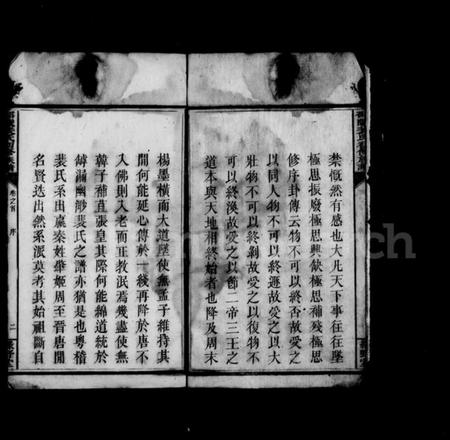 禁慨然有感也大凡天下事往往墜
極思振廢極思興缺極思補殘極思
修序卦傳云物不可以終否故受之
以同人物不可以終遯故受之以大
壯物不可以終剥故受之以復物不
可以終渙故受之以節二帝三王之
道本與天地相終始者也降及周末
楊墨橫而大道壅使無孟子維持其
間何能延心傳於一綫再降於唐不
入佛則入老而正教泯焉幾盡使無
韓子薛董張皇其際何能綿道統於
裴氏之譜亦猶是也粵稽
裴氏系出嬴秦姓肇姬周至晉唐間
名賢迭出然系遠莫考其始祖斷自
卷之首 序 二